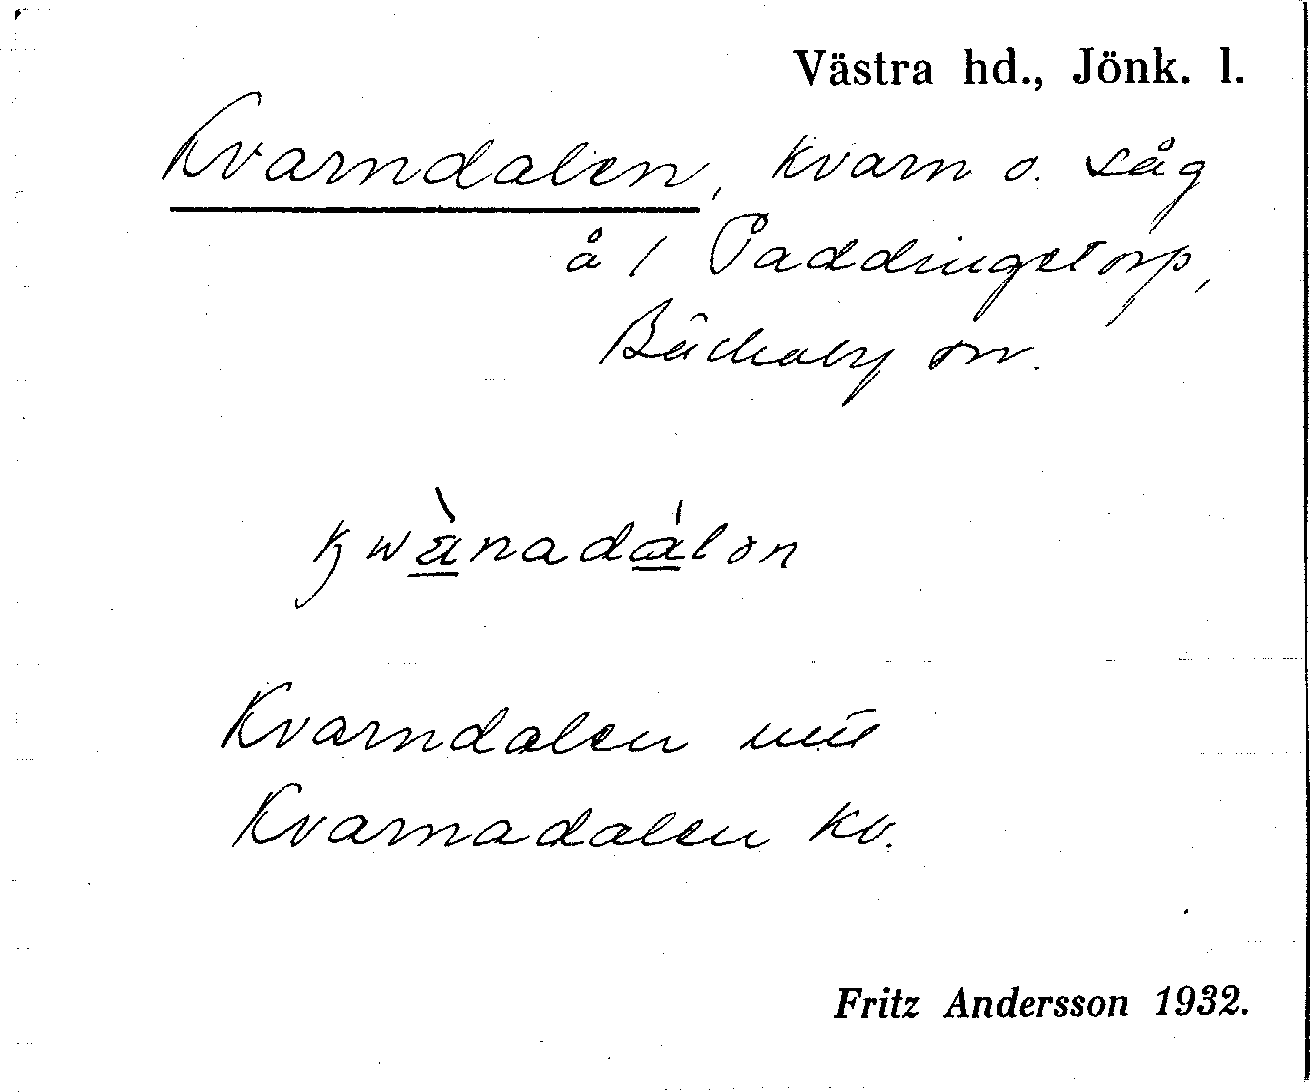 Västra hd., Jönk. l.
Kvarndalen, kvarn o. såg
å 1 Paddingetorp,
Bäckaby sn.
kwànadálən
Kvarndalen
Kvarnadalen kv.
Fritz Andersson 1932.